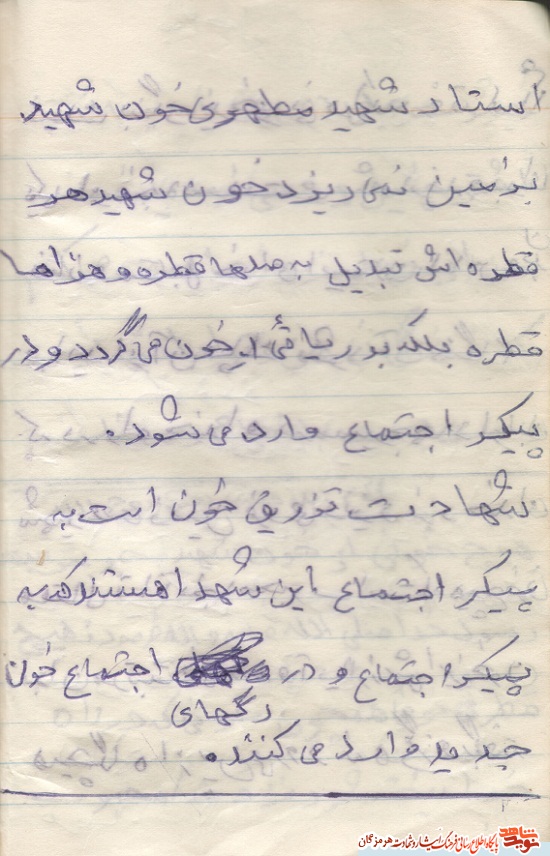 استاد شهید مطهری خون شهید
بر زمین نمی ریزد خون شهید هر
قطره اش تبدیل به صدها قطره و هزارها
قطره بلکه بدریائی از خون می گردد و در
پیکر اجتماع وارد می شود.
شهادت تزریق خون است به
پیکر اجتماع این شهدا هستند که به
پیکر اجتماع و در اجتماع خون
رگهای
جدید وارد می کنند.
نوید شاهد پایگاه اطلاع رسانی فرهنگ ایثار و شهادت هرمزگان